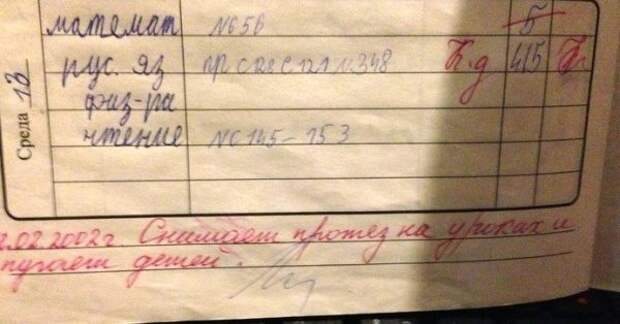 Среда 13
математ №656 5
рус. яз №348 К.д 4/5
физ-ра
чтение №С 145-153
.02.2002г. Снимает протез на уроках и
пугает детей.